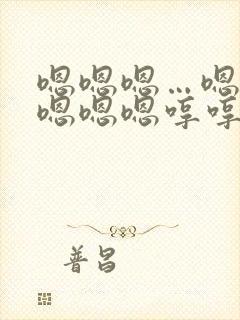 嗯嗯嗯…嗯
嗯嗯嗯哼哼
普昌